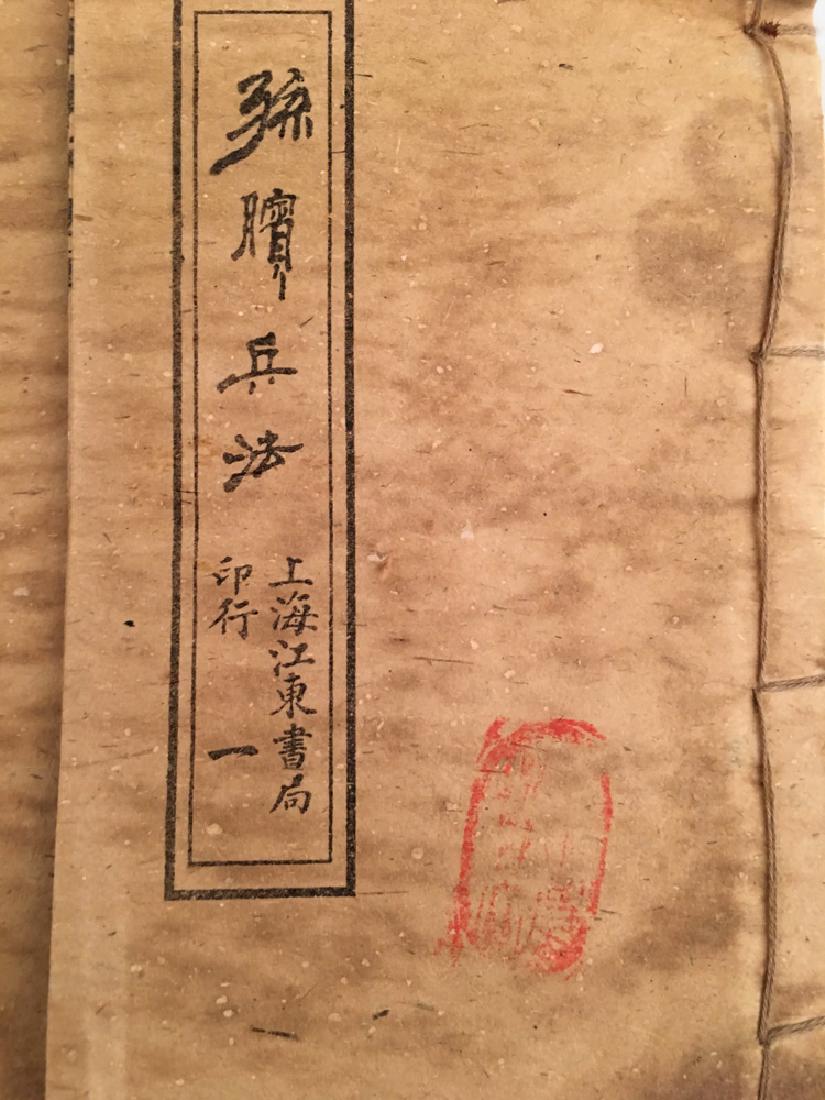 孫臏兵法
上海江東書局
印行 一